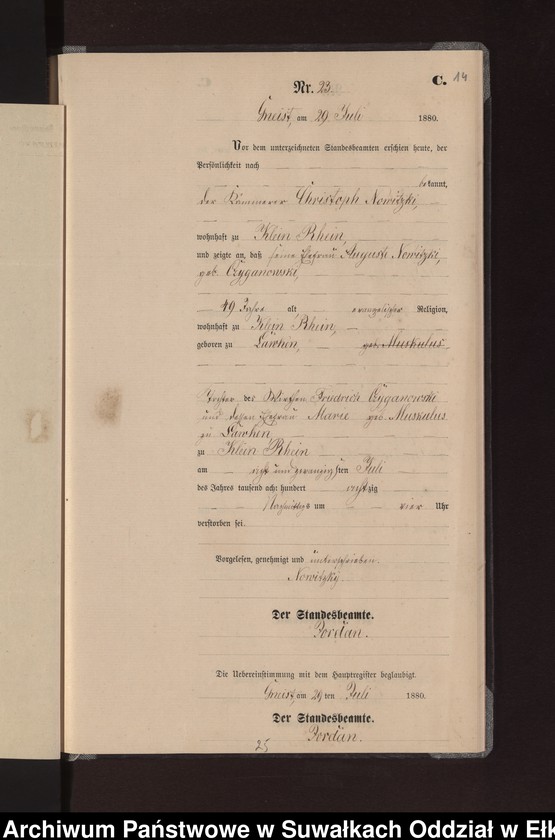 C. 14
Nr. 23.
Gneist, am 29 Juli 1880.
Vor dem unterzeichneten Standesbeamten erschien heute, der
Persönlichkeit nach
bekannt,
der Kämmerer Christoph Nowitzki,
wohnhaft zu Klein Rhein,
und zeigte an, daß seine Ehefrau Auguste Nowitzki,
geb. Czyganowski,
49 Jahre alt evangelischer Religion,
wohnhaft zu Klein Rhein,
geboren zu Lawken, geb. Muskulus
Tochter des Friedrich Czyganowski
und dessen Ehefrau Marie geb. Muskulus
zu Lawken
zu Klein Rhein
am acht und zwanzigsten Juli
des Jahres tausend acht hundert achtzig
Nachmittags um vier Uhr
verstorben sei.
Vorgelesen, genehmigt und unterschrieben.
Nowitzky
Der Standesbeamte.
Jordan.
Die Uebereinstimmung mit dem Hauptregister beglaubigt.
Gneist, am 29 ten Juli 1880.
Der Standesbeamte.
Jordan.
25
Archiwum Państwowe w Suwałkach Oddział w Ełk